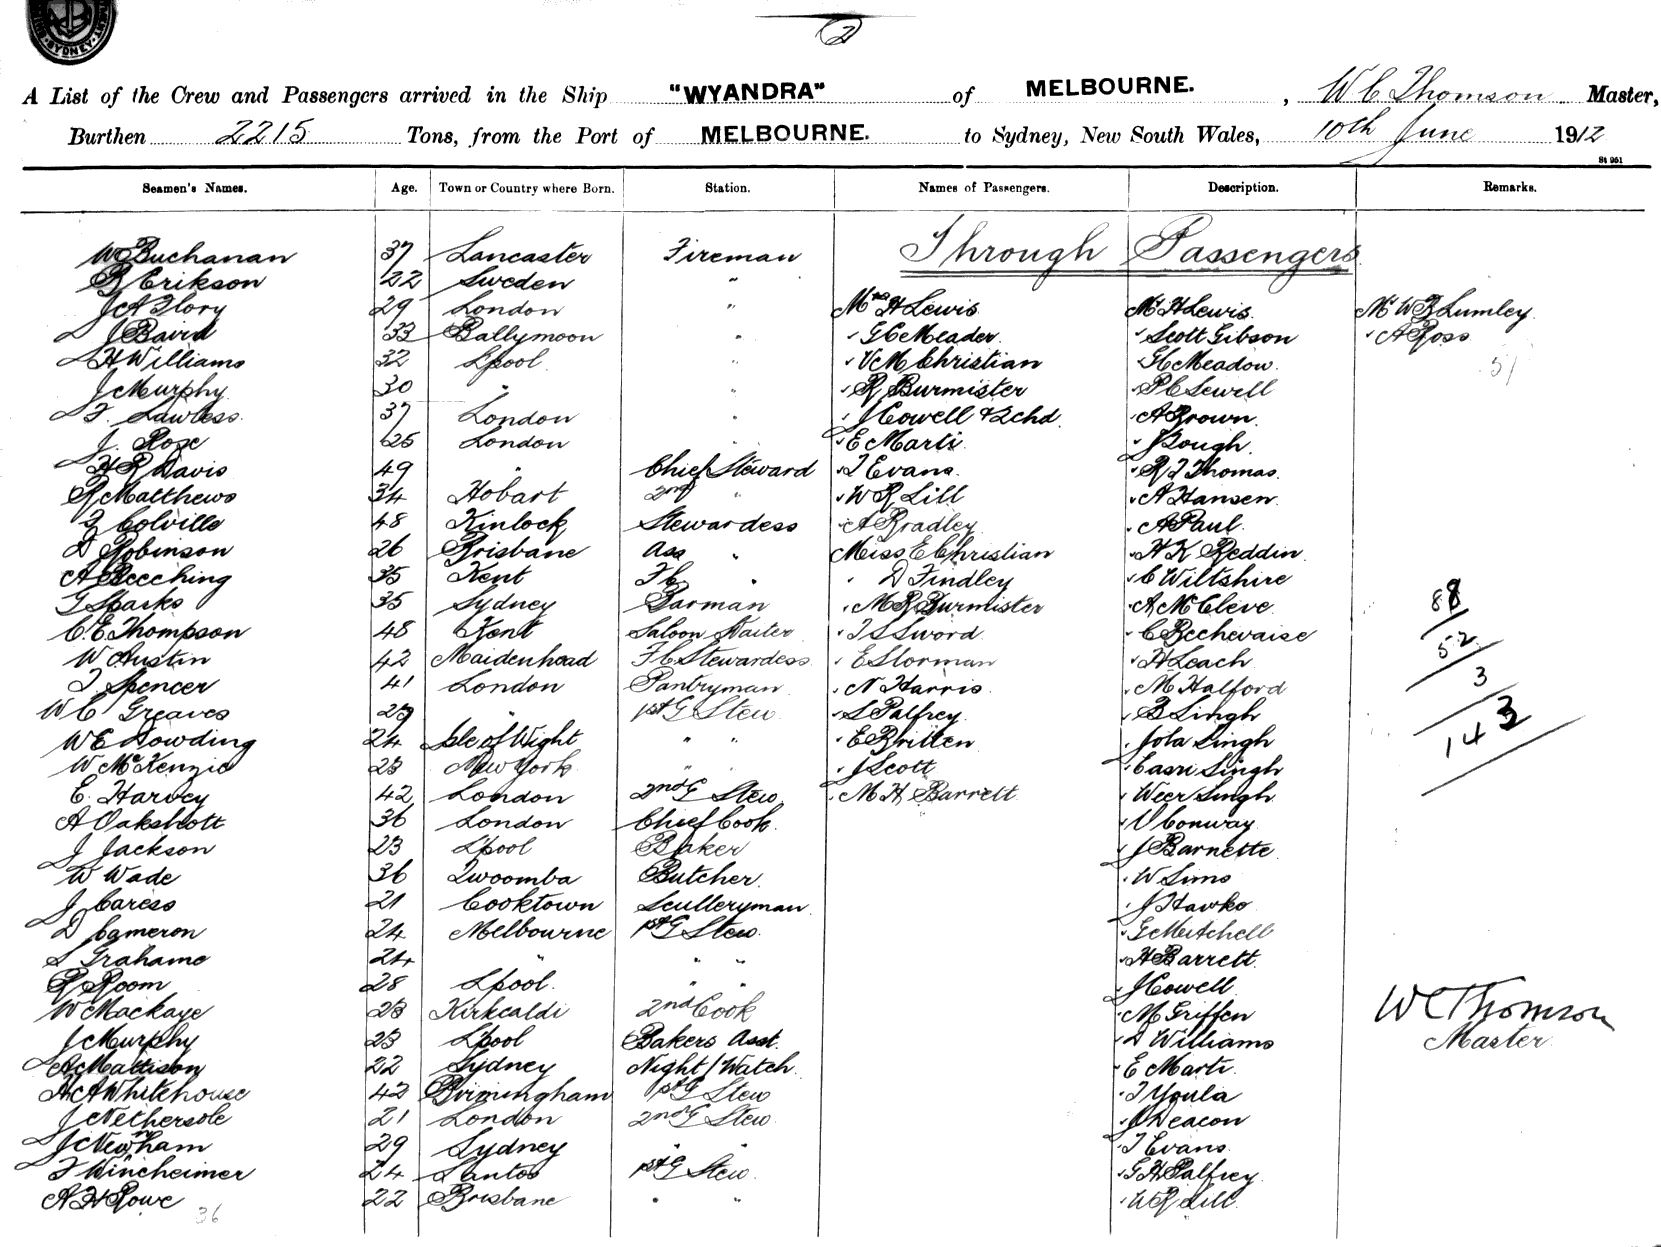 SYDNEY
2
A List of the Crew and Passengers arrived in the Ship "WYANDRA" of MELBOURNE. , W C Thomson Master,
Burthen 2215 Tons, from the Port of MELBOURNE. to Sydney, New South Wales, 10th June 1912
St 951
Seamen's Names. Age. Town or Country where Born. Station. Names of Passengers. Description. Remarks.
Through Passengers
W Buchanan 37 Lancaster Fireman
R Erikson 22 Sweden "
J A Flory 29 London " Mrs H Lewis Mr H Lewis Mr W R Lumley
J Baird 33 Ballymoon " " G C Meader " Scott Gibson " A Ross
H Williams 32 Lpool " " V M Christian " G C Meadow 51
J Murphy 30 " " " R Burmister " P C Sewell
F. Lawless 37 London " " J Cowell & 2 chd " A Brown
J. Rose 25 London " " E Marti " J Gough
H R Davis 49 " Chief Steward " T Evans " R J Thomas
R Matthews 34 Hobart 2nd " " W R Lill " A Hansen
Colville 48 Kinlock Stewardess " A Bradley " A Paul
D Robinson 26 Brisbane Ass " Miss E Christian " H K Reddin
A Beeching 35 Kent F C " " D Findley " C Wiltshire 88
G Sparks 35 Sydney Barman " M R Burmister " A McCleve
C. E. Thompson 48 Kent Saloon Waiter " I S Sword " C Bechevaise 52
W Austin 42 Maidenhead F C Stewardess " E Storman " H Leach
T Spencer 41 London Pantryman " N Harris " M Halford 3
W C Greaves 29 " 1st G Stew " S Palfrey " B Singh
W E Dowding 24 Isle of Wight " " " E Britten " Jola Singh 143
W McKenzie 23 New York " " " J Scott " Easri Singh
E. Harvey 42 London 2nd G Stew " M H Barrett " Weer Singh
A Oakshott 36 London Chief Cook " V Conway
J Jackson 23 Lpool Baker " J Barnette
W Wade 36 Twoomba Butcher " W Sims
J Caress 21 Cooktown Sculleryman " J Hawko
D Cameron 24 Melbourne 1st G Stew " G Mitchell
S Grahame 24 " " " " H Barrett
R Room 28 Lpool " " " J Cowell
W Mackaye 23 Kirkcaldi 2nd Cook " M Griffen W C Thomson
J Murphy 23 Lpool Bakers Asst. " D Williams Master
A Mattison 22 Sydney Night/Watch " E Marti
H A Whitehouse 42 Birmingham 1st G Stew " T Youla
J Nethersole 21 London 2nd G Stew " J Deacon
J Newnham 29 Sydney " " " T Evans
F Wincheimer 24 Santos 1st G Stew " G H Palfrey
A H Rowe 22 Brisbane " " " W R Lill
36